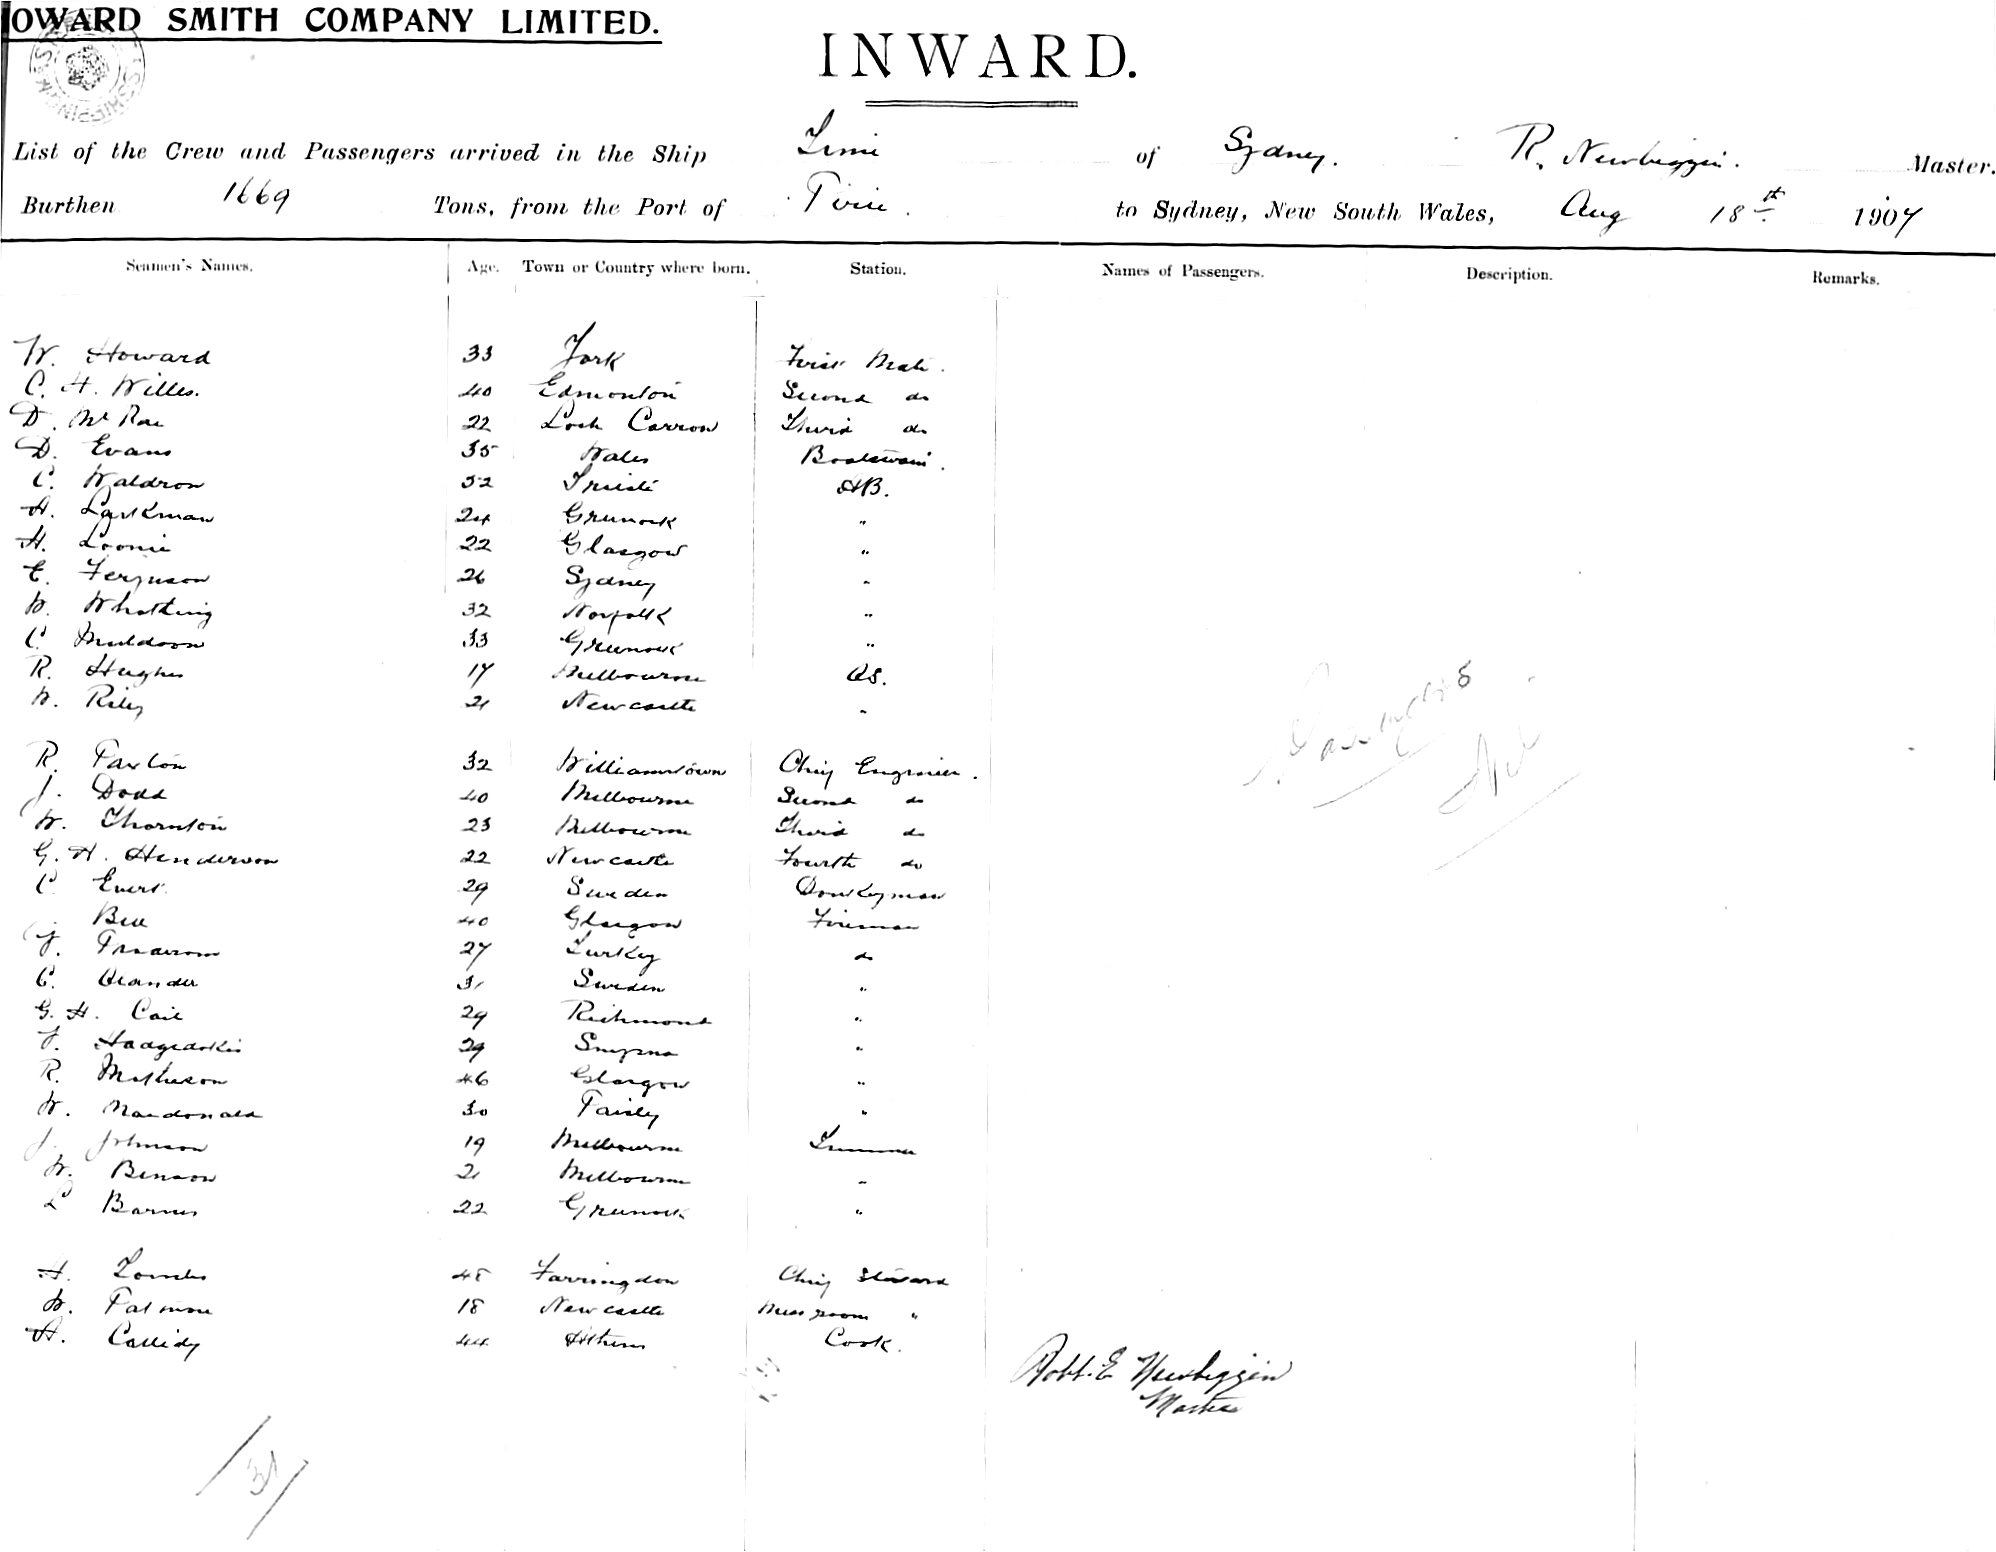 HOWARD SMITH COMPANY LIMITED.
INWARD.
List of the Crew and Passengers arrived in the Ship Time of Sydney. R. Newbiggin. Master.
Burthen 1669 Tons, from the Port of Pirie. to Sydney, New South Wales, Aug 18th 1907
Seamen's Names. Age. Town or Country where born. Station. Names of Passengers. Description. Remarks.
W. Howard 33 York First Mate.
C. H. Willes. 40 Edmonton Second do
D. McRae 22 Loch Carron Third do
D. Evans 35 Wales Boatswain.
C. Waldron 52 Trieste AB.
A. Larkman 24 Greenock "
H. Loonie 22 Glasgow "
E. Ferguson 26 Sydney "
W. Whatling 32 Norfolk "
C. Muldoon 33 Greenock "
R. Hughes 17 Melbourne OS.
W. Riley 21 Newcastle "
Passengers
Nil
R. Paxton 32 Williamstown Chief Engineer.
J. Dodd 40 Melbourne Second do
W. Thornton 23 Melbourne Third do
G. H. Henderson 22 Newcastle Fourth do
C. Evert 29 Sweden Donkeyman
J. Bell 40 Glasgow Fireman
J. 27 Turkey do
C. Olander 31 Sweden "
G. H. Cail 29 Richmond "
J. 29 Smyrna "
R. Matheson 46 Glasgow "
W. Macdonald 30 Paisley "
J. Johnson 19 Melbourne Trimmer
W. Benson 21 Melbourne "
L. Barnes 22 Greenock "
A. 48 Farringdon Chief Steward
W. Patmore 18 Newcastle Messroom "
A. Callidy 44 Athens Cook.
Robt. E Newbiggin
Master
31